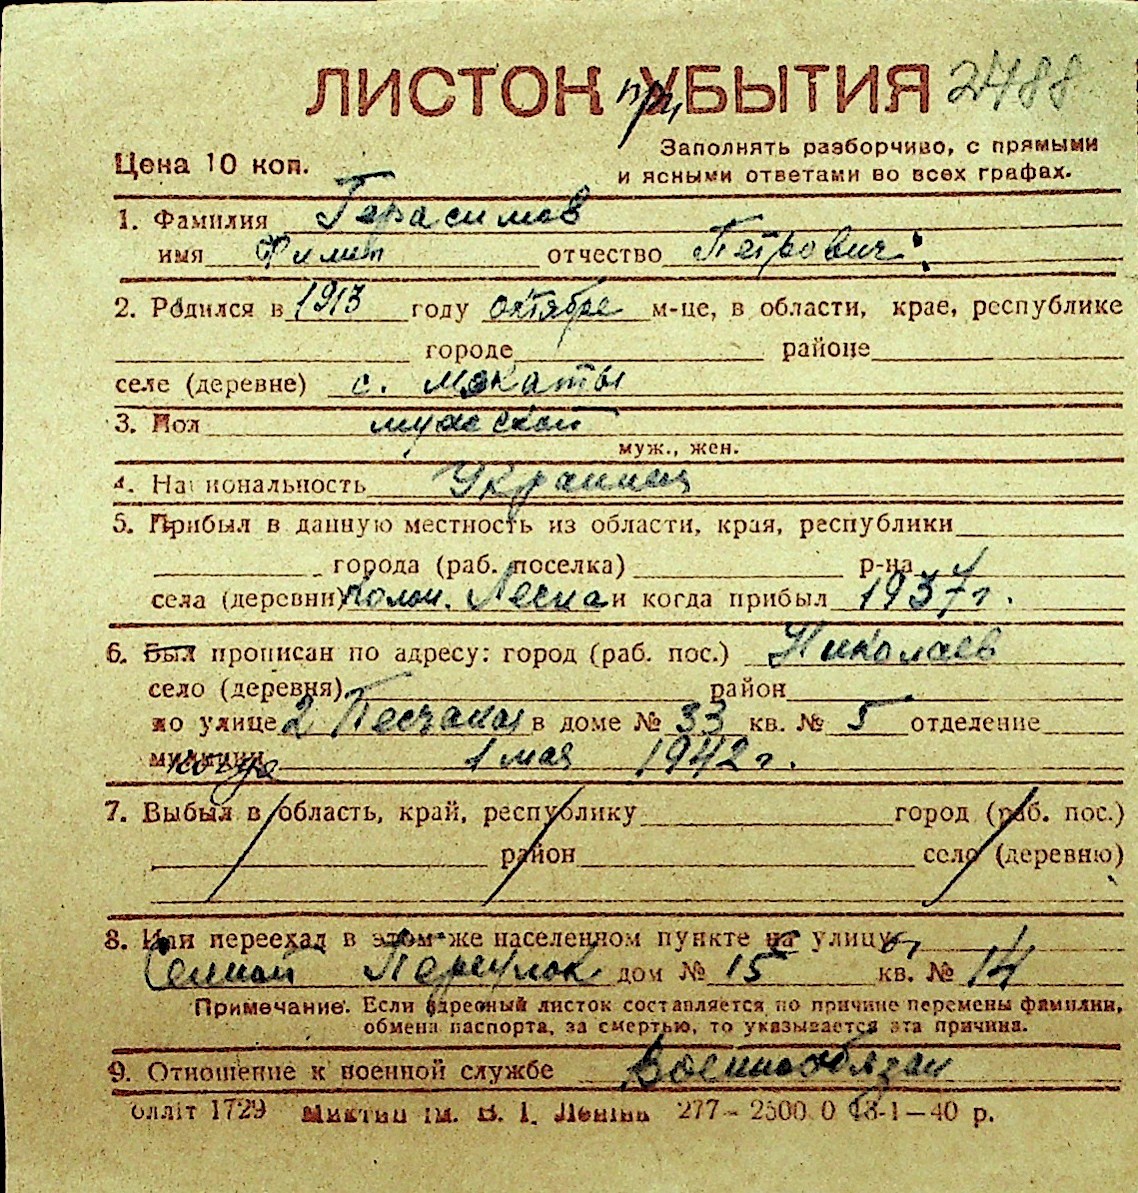 ЛИСТОК при УБЫТИЯ 2488
Цена 10 коп.
Заполнять разборчиво, с прямыми
и ясными ответами во всех графах.
1. Фамилия Герасимов
имя Филип отчество Петрович
2. Родился в 1913 году октябре м-це, в области, крае, республике
городе районе
селе (деревне) с. Мокаты
3. Пол мужской
муж., жен.
4. Национальность Украинец
5. Прибыл в данную местность из области, края, республики
города (раб. поселка) р-на
села (деревни) Колон. Лесна и когда прибыл 1937 г.
6. Был прописан по адресу: город (раб. пос.) Николаев
село (деревня) район
по улице 2 Песчаная в доме № 33 кв. № 5 отделение
милиции когда 1 мая 1942 г.
7. Выбыл в область, край, республику город (раб. пос.)
район село (деревню)
8. Или переехал в этом же населенном пункте на улицу
Сенной Переулок дом № 15 кв. № 14
Примечание. Если адресный листок составляется по причине перемены фамилии,
обмена паспорта, за смертью, то указывается эта причина.
9. Отношение к военной службе Военнообязан
Оlліт 1729 ім. В. І. Леніна 277–2500.0 18-1–40 р.